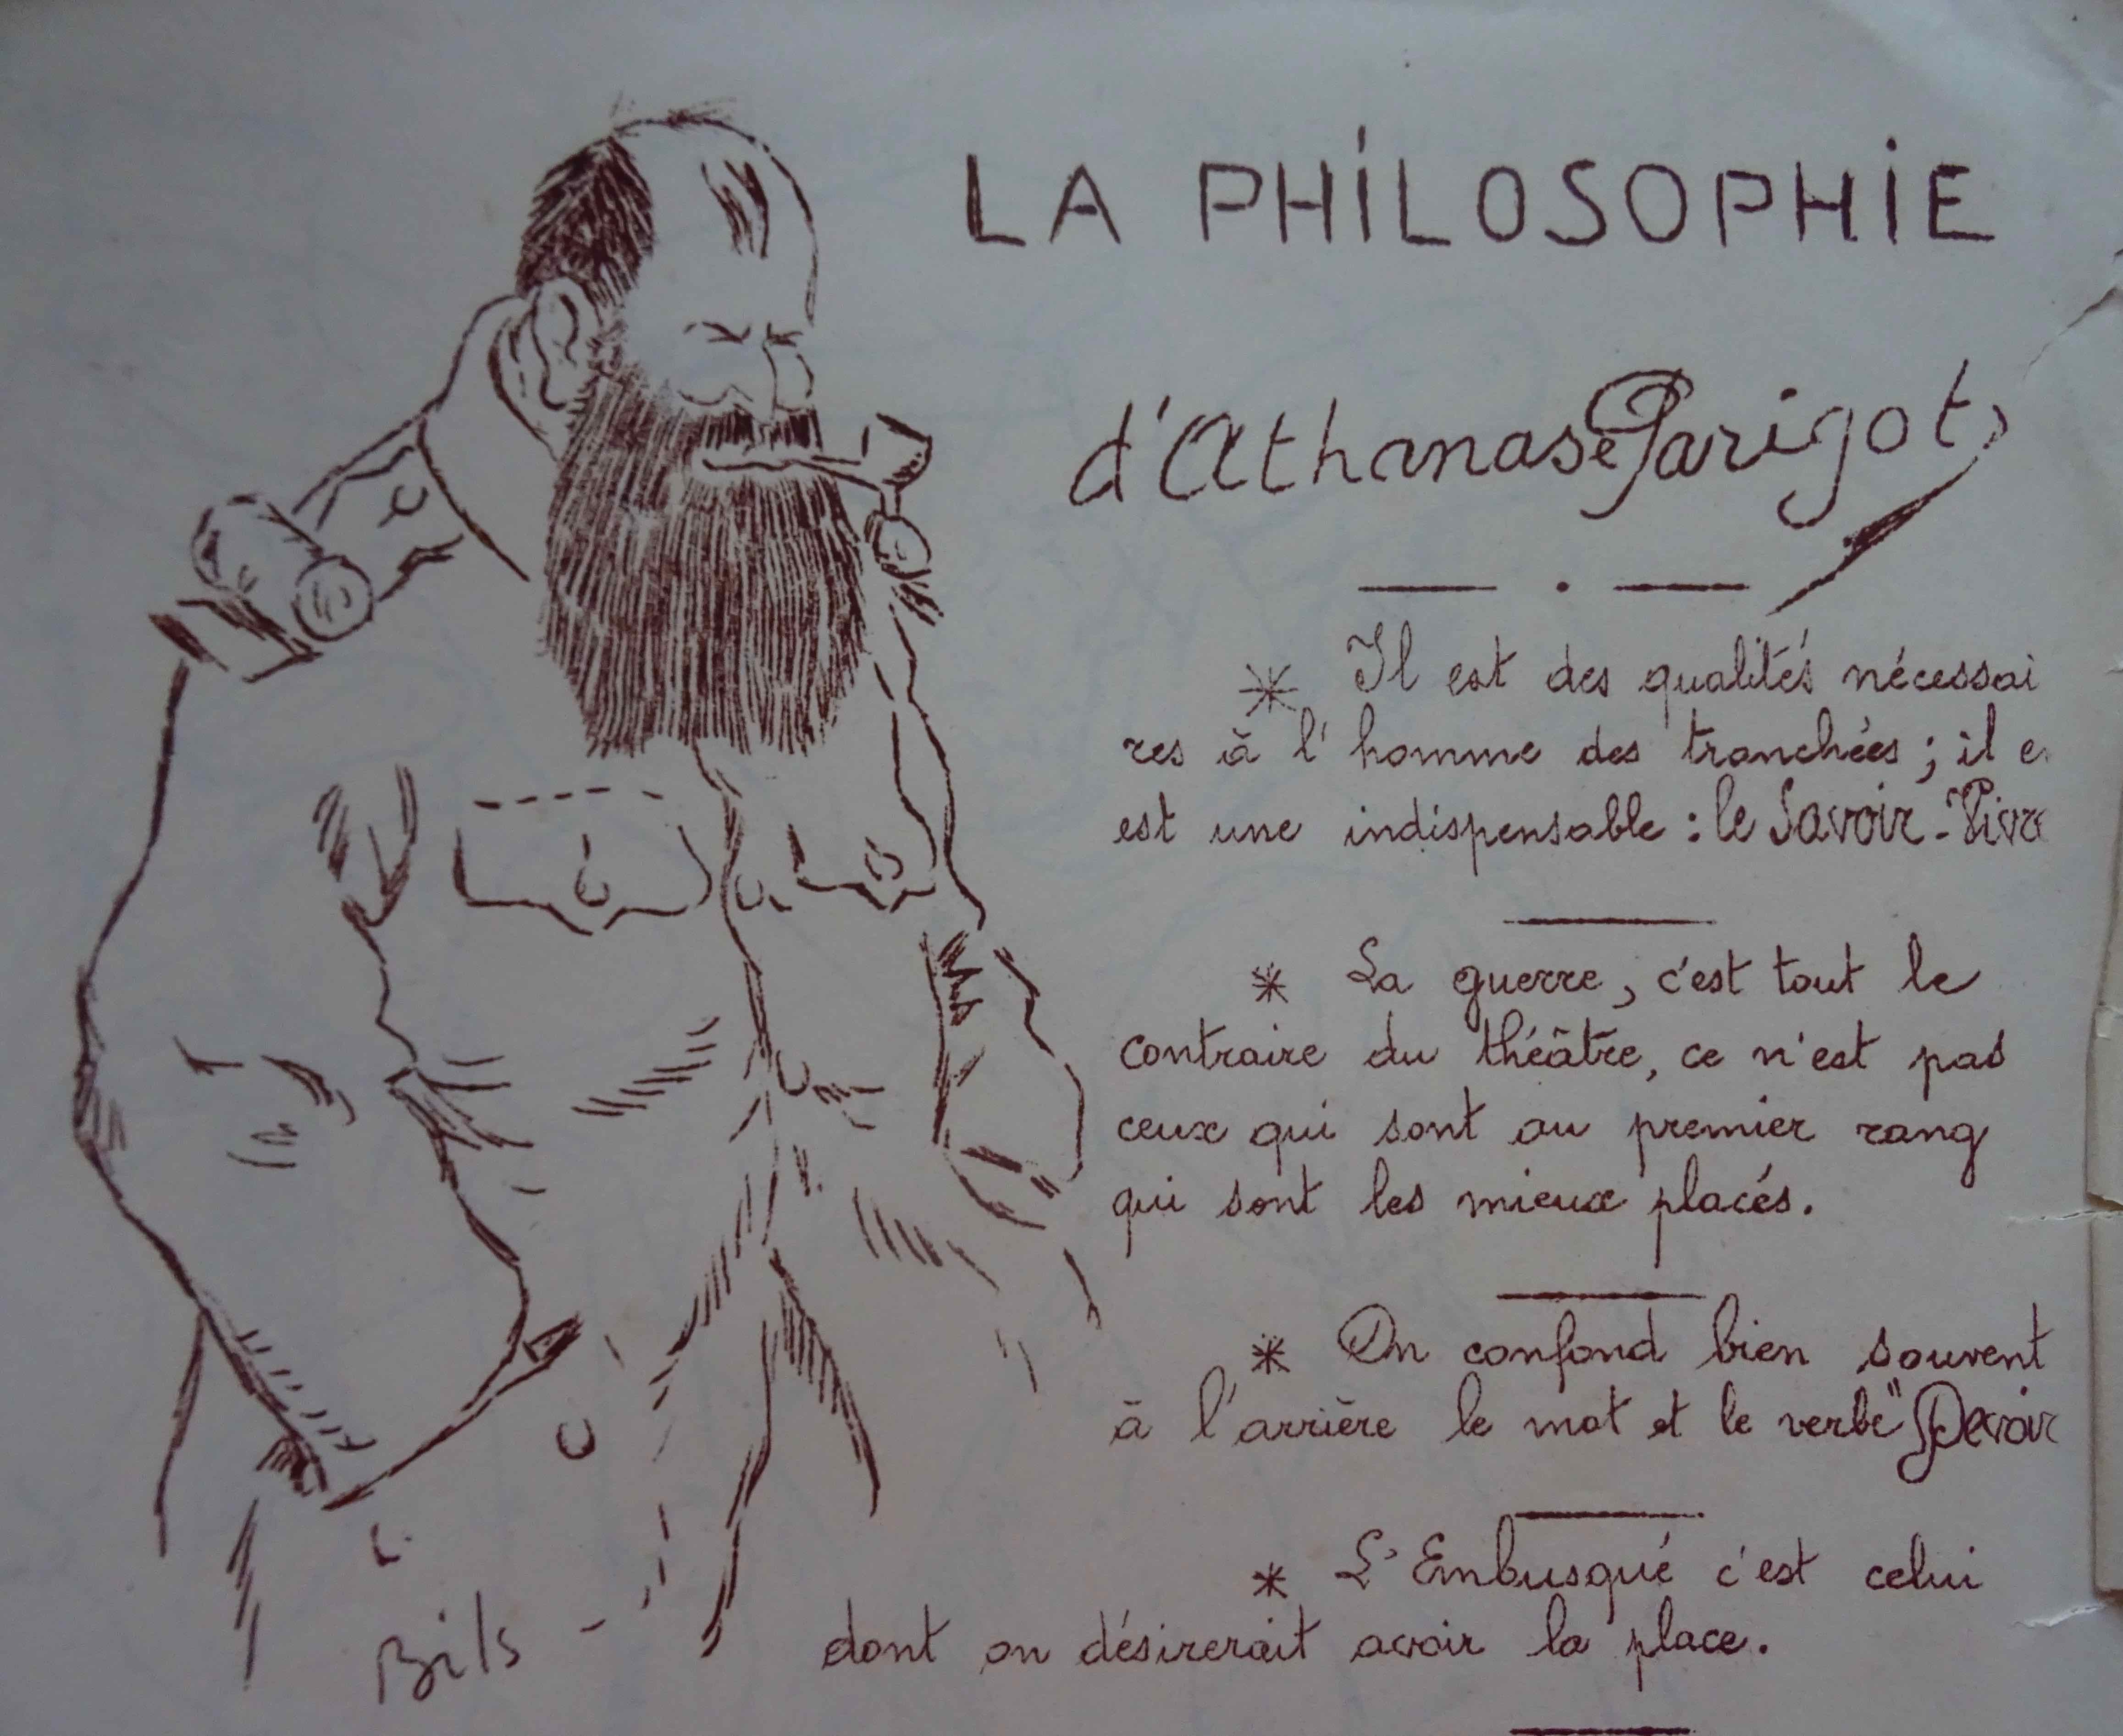 LA PHILOSOPHIE
d'Athanase Parigot
* Il est des qualités nécessai
res à l'homme des tranchées ; il e
est une indispensable : le Savoir-Vivre
* La guerre, c'est tout le
contraire du théâtre, ce n'est pas
ceux qui sont au premier rang
qui sont les mieux placés.
* On confond bien souvent
à l'arrière le mot et le verbe "Devoir
* L'Embusqué c'est celui
dont on désirerait avoir la place.
Bils